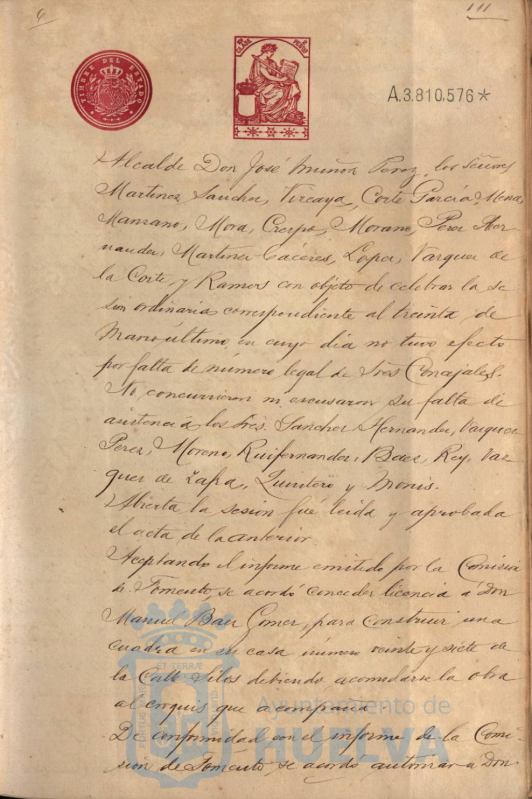 6
111
TIMBRE DEL ESTADO
A.3.810.576*
Alcalde Don José Muñoz Perez, los Señores
Martinez Sanchez, Vizcaya, Corte Garcia Mena,
Manzano, Mora, Crespo, Morano, Perez Her-
nandez, Martinez Cáceres, Lopez, Vazquez de
la Corte y Ramos con objeto de celebrar la se
sion ordinaria correspondiente al treinta de
Marzo último, en cuyo dia no tuvo efecto
por falta de número legal de Sres Concejales.
No concurrieron ni escusaron su falta de
asistencia los Sres. Sanchez Hernandez, Vazquez
Perez, Moreno, Ruifernandez, Baez, Rey, Vaz
quez de Zapa, Quintero y Monis.
Abierta la sesion fué leida y aprobada
el acta de la anterior.
Aceptando el informe emitido por la Comision
de Fomento, se acordó conceder licencia á Don
Manuel Baez Gomez, para construir una
cuadra en su casa número veinte y siete de
la Calle Silos debiendo acomodarse la obra
al croquis que acompaña.
De conformidad con el informe de la Comi-
sion de Fomento se acordó autorizar a Don
Ayuntamiento de
HUELVA